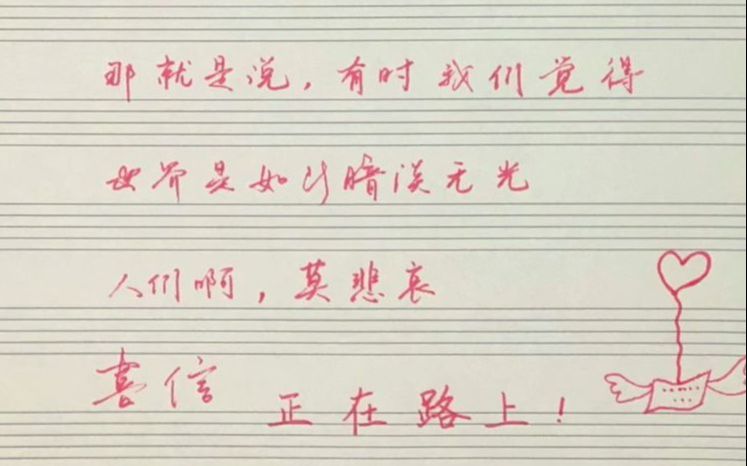 那就是说，有时我们觉得
世界是如此暗淡无光
人们啊，莫悲哀
喜信 正在路上！